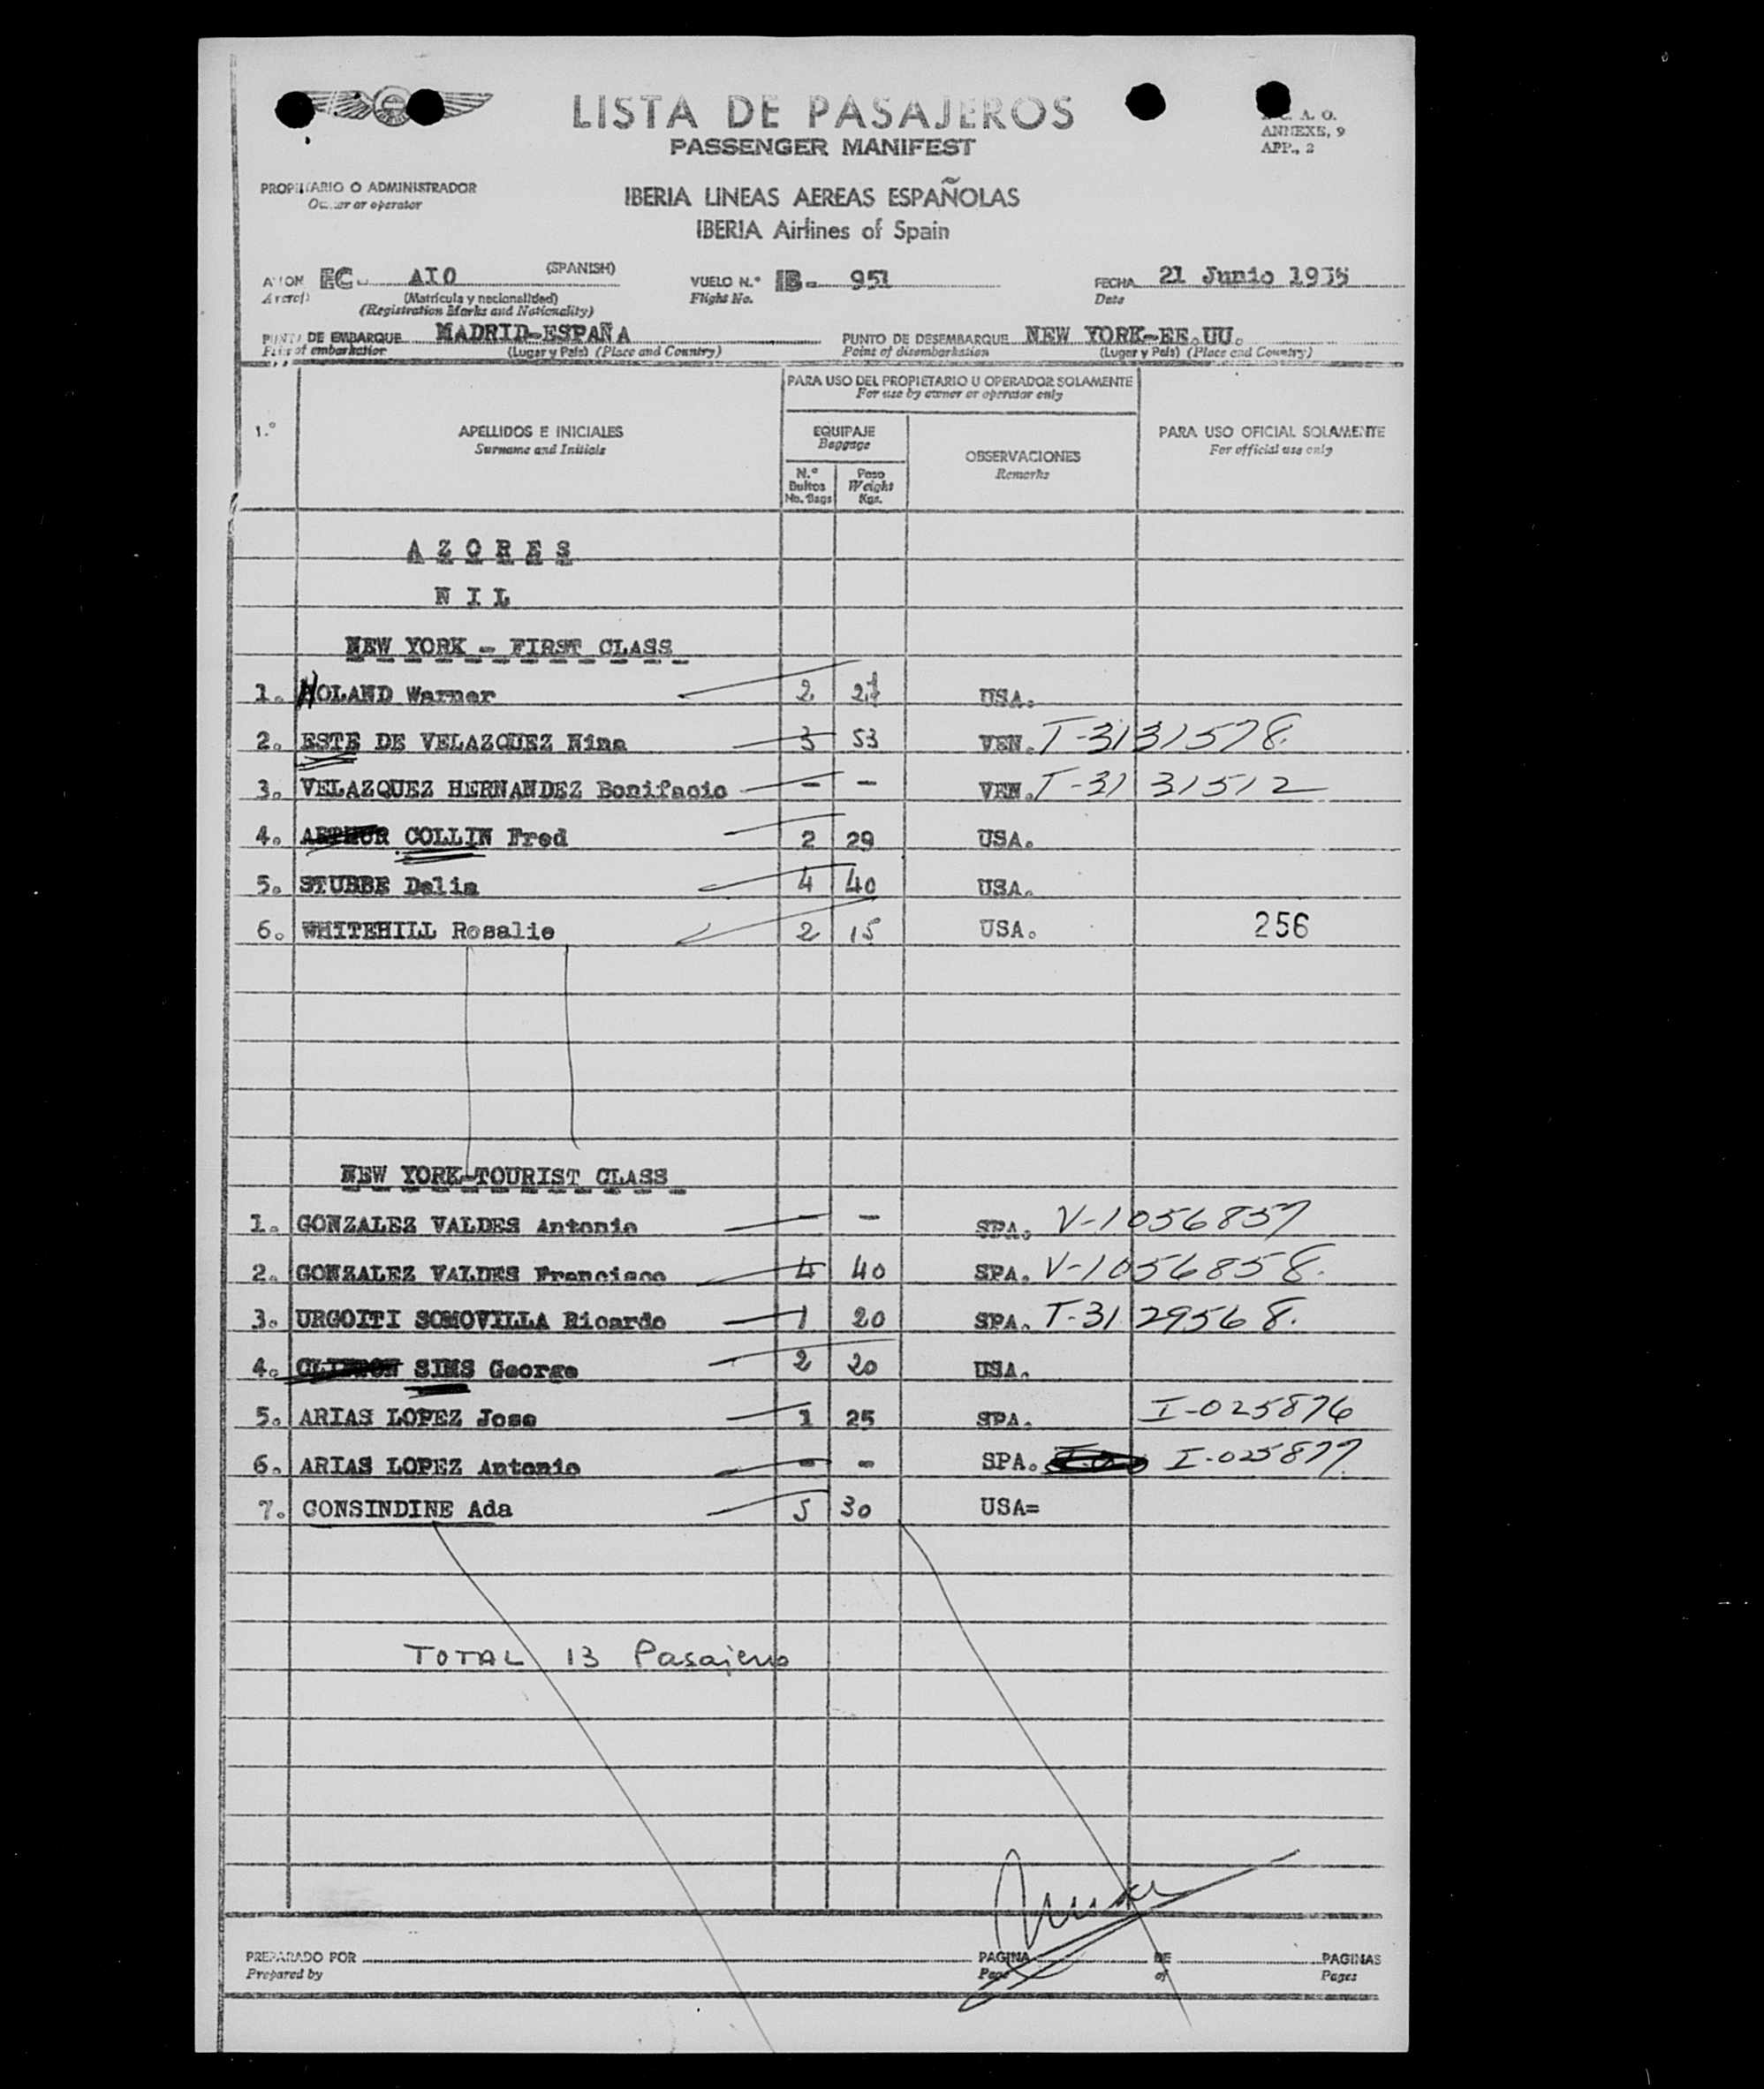 LISTA DE PASAJEROS
PASSENGER MANIFEST
A. O.
ANNEXE, 9
APP., 2
PROPIETARIO O ADMINISTRADOR
Owner or operator
IBERIA LINEAS AEREAS ESPAÑOLAS
IBERIA Airlines of Spain
AVION EC- AIO (SPANISH)
Aircraft (Matrícula y nacionalidad)
(Registration Marks and Nationality)
VUELO N.º IB- 951
Flight No.
FECHA 21 Junio 1955
Date
PUNTO DE EMBARQUE MADRID-ESPAÑA
Point of embarkation (Lugar y País) (Place and Country)
PUNTO DE DESEMBARQUE NEW YORK-EE.UU.
Point of disembarkation (Lugar y País) (Place and Country)
PARA USO DEL PROPIETARIO U OPERADOR SOLAMENTE
For use by owner or operator only
1.º
APELLIDOS E INICIALES
Surname and Initials
EQUIPAJE
Baggage
N.º Bultos No. Bags
Peso Weight Kgs.
OBSERVACIONES
Remarks
PARA USO OFICIAL SOLAMENTE
For official use only
AZORES
NIL
NEW YORK - FIRST CLASS
1. NOLAND Warner 2 USA.
2. ESTE DE VELAZQUEZ Nina 3 53 VEN. T-3131578.
3. VELAZQUEZ HERNANDEZ Bonifacio - - VEN. T-3131512
4. ARTHUR COLLIN Fred 2 29 USA.
5. STUBBE Delia 4 40 USA.
6. WHITEHILL Rosalie 2 15 USA. 256
NEW YORK-TOURIST CLASS
1. GONZALEZ VALDES Antonio - - SPA. V-1056857
2. GONZALEZ VALDES Francisco 4 40 SPA. V-1056858.
3. URGOITI SOMOVILLA Ricardo 1 20 SPA. T-3129568.
4. CLINTON SIMS George 2 20 USA.
5. ARIAS LOPEZ Jose 1 25 SPA. I-025876
6. ARIAS LOPEZ Antonio - - SPA. I-025877.
7. CONSINDINE Ada 5 30 USA=
TOTAL 13 Pasajeros
PREPARADO POR
Prepared by
PAGINA DE PAGINAS
Page of Pages